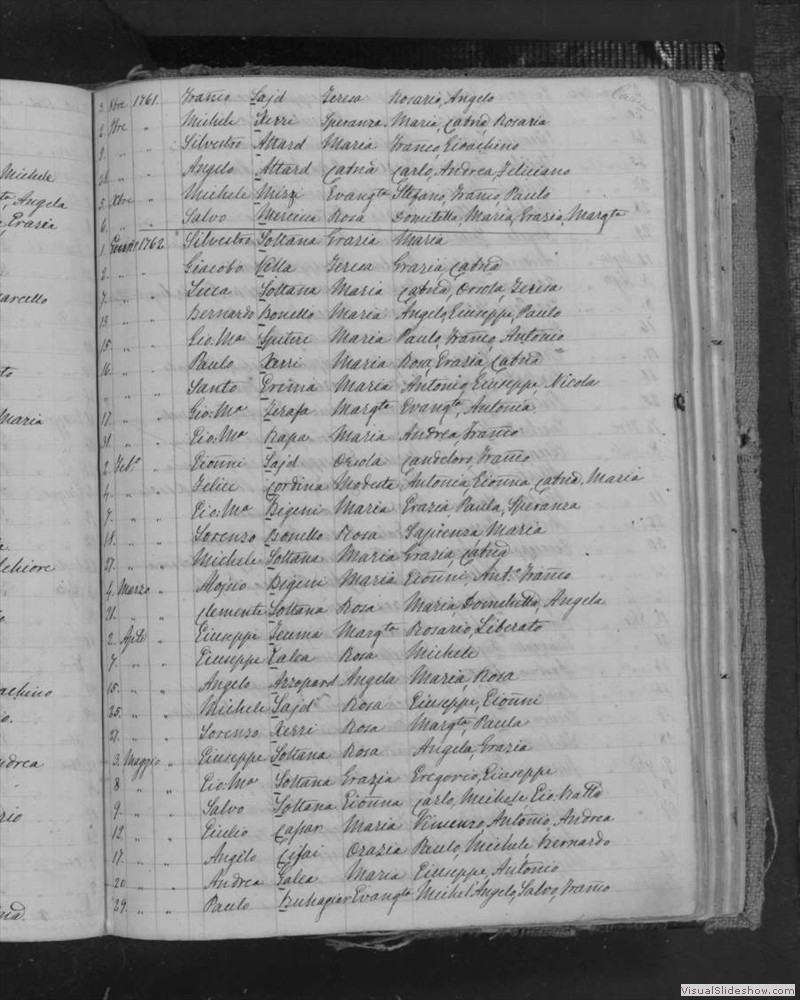 Michele
Angela
Grazia
arcello
to
Maria
lchiore
achino
ndrea
rio
nd.
2. 8bre 1761. Franco Sajd Teresa Rosario, Angelo
2. 9bre " Michele Xerri Speranza Maria, Catnd Rosaria
9. " " Silvestro Attard Maria Franco, Gioachino
" " Angelo Attard Catnd Carlo, Andrea, Feliciano
5. Xbre " Michele Mizzi Evangta Stefano, Franco, Paulo
6. " " Salvo Mercieca Rosa Domitilla, Maria, Grazia, Margta
1 1762 Silvestro Soltana Grazia Maria
2. " " Giacobo Vella Teresa Grazia, Catnd
7. " " Luca Soltana Maria Catnd, Orsola, Teresa
13 " " Bernardo Bonello Maria Angelo, Giuseppe, Paulo
15. " " Gio: Ma Spiteri Maria Paulo, Franco, Antonio
16. " " Paulo Xerri Maria Rosa, Grazia, Catnd
" " " Santo Grima Maria Antonio, Giuseppe, Nicola
17. " " Gio: Ma Zerafa Margta Evangta, Antonia
31. " " Gio: Ma Rapa Maria Andrea, Franco
2. Feb.o " Gionni Sajd Orsola Candeloro, Franco
4. " " Felice Cordina Modesta Antonia, Gionna, Catnd, Maria
7. " " Gio: Ma Bigeni Maria Grazia, Paula, Speranza
18. " " Lorenzo Bonello Rosa Sapienza, Maria
27. " " Michele Soltana Maria Grazia, Catnd
4. Marzo " Aloisio Bigeni Maria Gionni, Ant.o Franco
21. " " Clemente Soltana Rosa Maria Domitilla, Angela
2. Aple " Giuseppe Teuma Margta Rosario, Liberato
7. " " Giuseppe Galea Rosa Michele
15. " " Angelo Azzopard Angela Maria, Rosa
25. " " Michele Sajd Rosa Giuseppe, Gionni
27. " " Lorenzo Xerri Rosa Margta, Paula
3. Maggio " Giuseppe Soltana Rosa Angela, Grazia
8 " " Gio: Ma Soltana Grazia Gregorio, Giuseppe
9. " " Salvo Soltana Gionna Carlo, Michele, Gio: Batta
12. " " Giulio Capar Maria Vincenzo, Antonio, Andrea
17. " " Angelo Cifai Grazia Paulo, Michele, Bernardo
20. " " Andrea Galea Maria Giuseppe, Antonio
29. " " Paulo Buhagiar Evangta Michel'Angelo, Salvo, Franco
VisualSlideshow.com